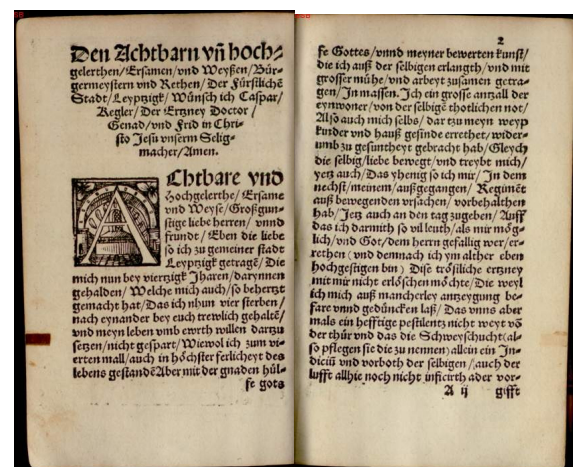 Den Achtbarn vñ hoch⸗
gelerthen/Ersamen/vnd Weyßen/Bür⸗
germeystern vnd Rethen/Der Fürstlichē
Stadt/Leyptzigk/Wünsch ich Caspar/
Kegler/Der Ertzney Doctor/
Genad/vnd Frid in Chri⸗
sto Jesu vnserm Selig⸗
macher/Amen.
AChtbare vnd
Hochgelerthe/Ersame
vnd Weyse/Großgun⸗
stige liebe herren/vnnd
frundt/Eben die liebe
so ich zu gemeiner stadt
Leyptzigk getragē/Die
mich nun bey viertzigk Jharen/darynnen
gehalden/Welche mich auch/so behertzt
gemacht hat/Das ich nhun vier sterben/
nach eynander bey euch trewlich gehaltē/
vnd meyn leben vmb ewrth willen dartzu
setzen/nicht gespart/Wiewol ich zum vi⸗
erten mall/auch in höchster ferlicheyt des
lebens gestandēAber mit der gnaden hül⸗
fe gots
2
fe Gottes/vnnd meyner bewerten kunst/
die ich auß der selbigen erlangth/vnd mit
grosser mühe/vnd arbeyt zusamen getra⸗
gen/Jn massen. Jch ein grosse antzall der
eynwoner/von der selbigē thotlichen not/
Also auch mich selbs/dar tzu meyn weyp
kinder vnd hauß gesinde errethet/wider⸗
umb zu gesuntheyt gebracht hab/Gleych
die selbig/liebe bewegt/vnd treybt mich/
yetz auch/Das yhenig so ich mir/Jn dem
nechst/meinem/außgegangen/Regimēt
auß bewegenden vrsachen/vorbehalthen
hab/Jetz auch an den tag zugeben/Auff
das ich darmith so vil leuth/als mir mög⸗
lich/vnd Got/dem herrn gefallig wer/er⸗
rethen (vnd demnach ich ym alther eben
hochgestigen bin) Dise tröstliche ertzney
mit mir nicht erlöschen möchte/Die weyl
ich mich auß mancherley antzeygung be⸗
fare vnnd gedüncken laß/Das vnns aber
mals ein hefftige pestilentz nicht weyt vō
der thür vnd das die Schweyschucht(al⸗
so pflegen sie die zu nennen)allein ein Jn⸗
diciū vnd vorboth der selbigen/auch der
lufft allhie noch nicht inficirth ader vor⸗
A ij gifft